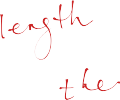 length
the